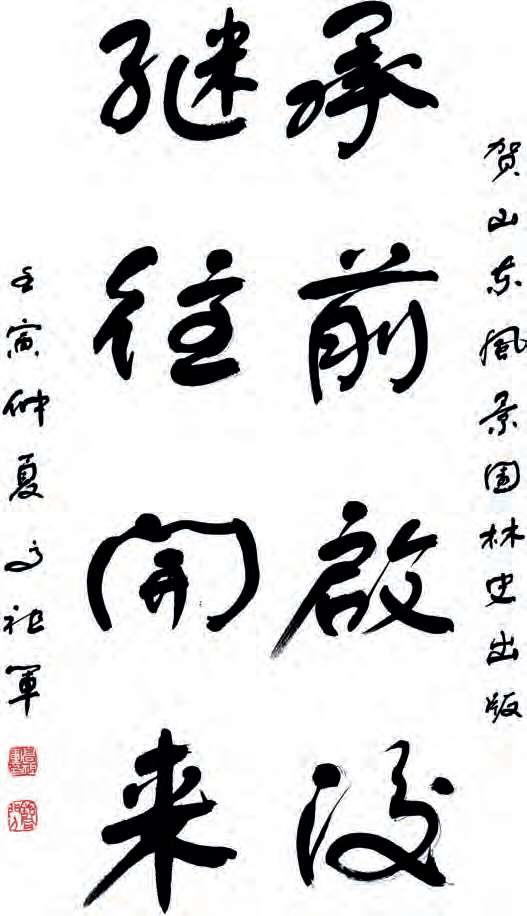 贺山东风景园林史出版
承前启後
继往开来
壬寅仲夏 祖军